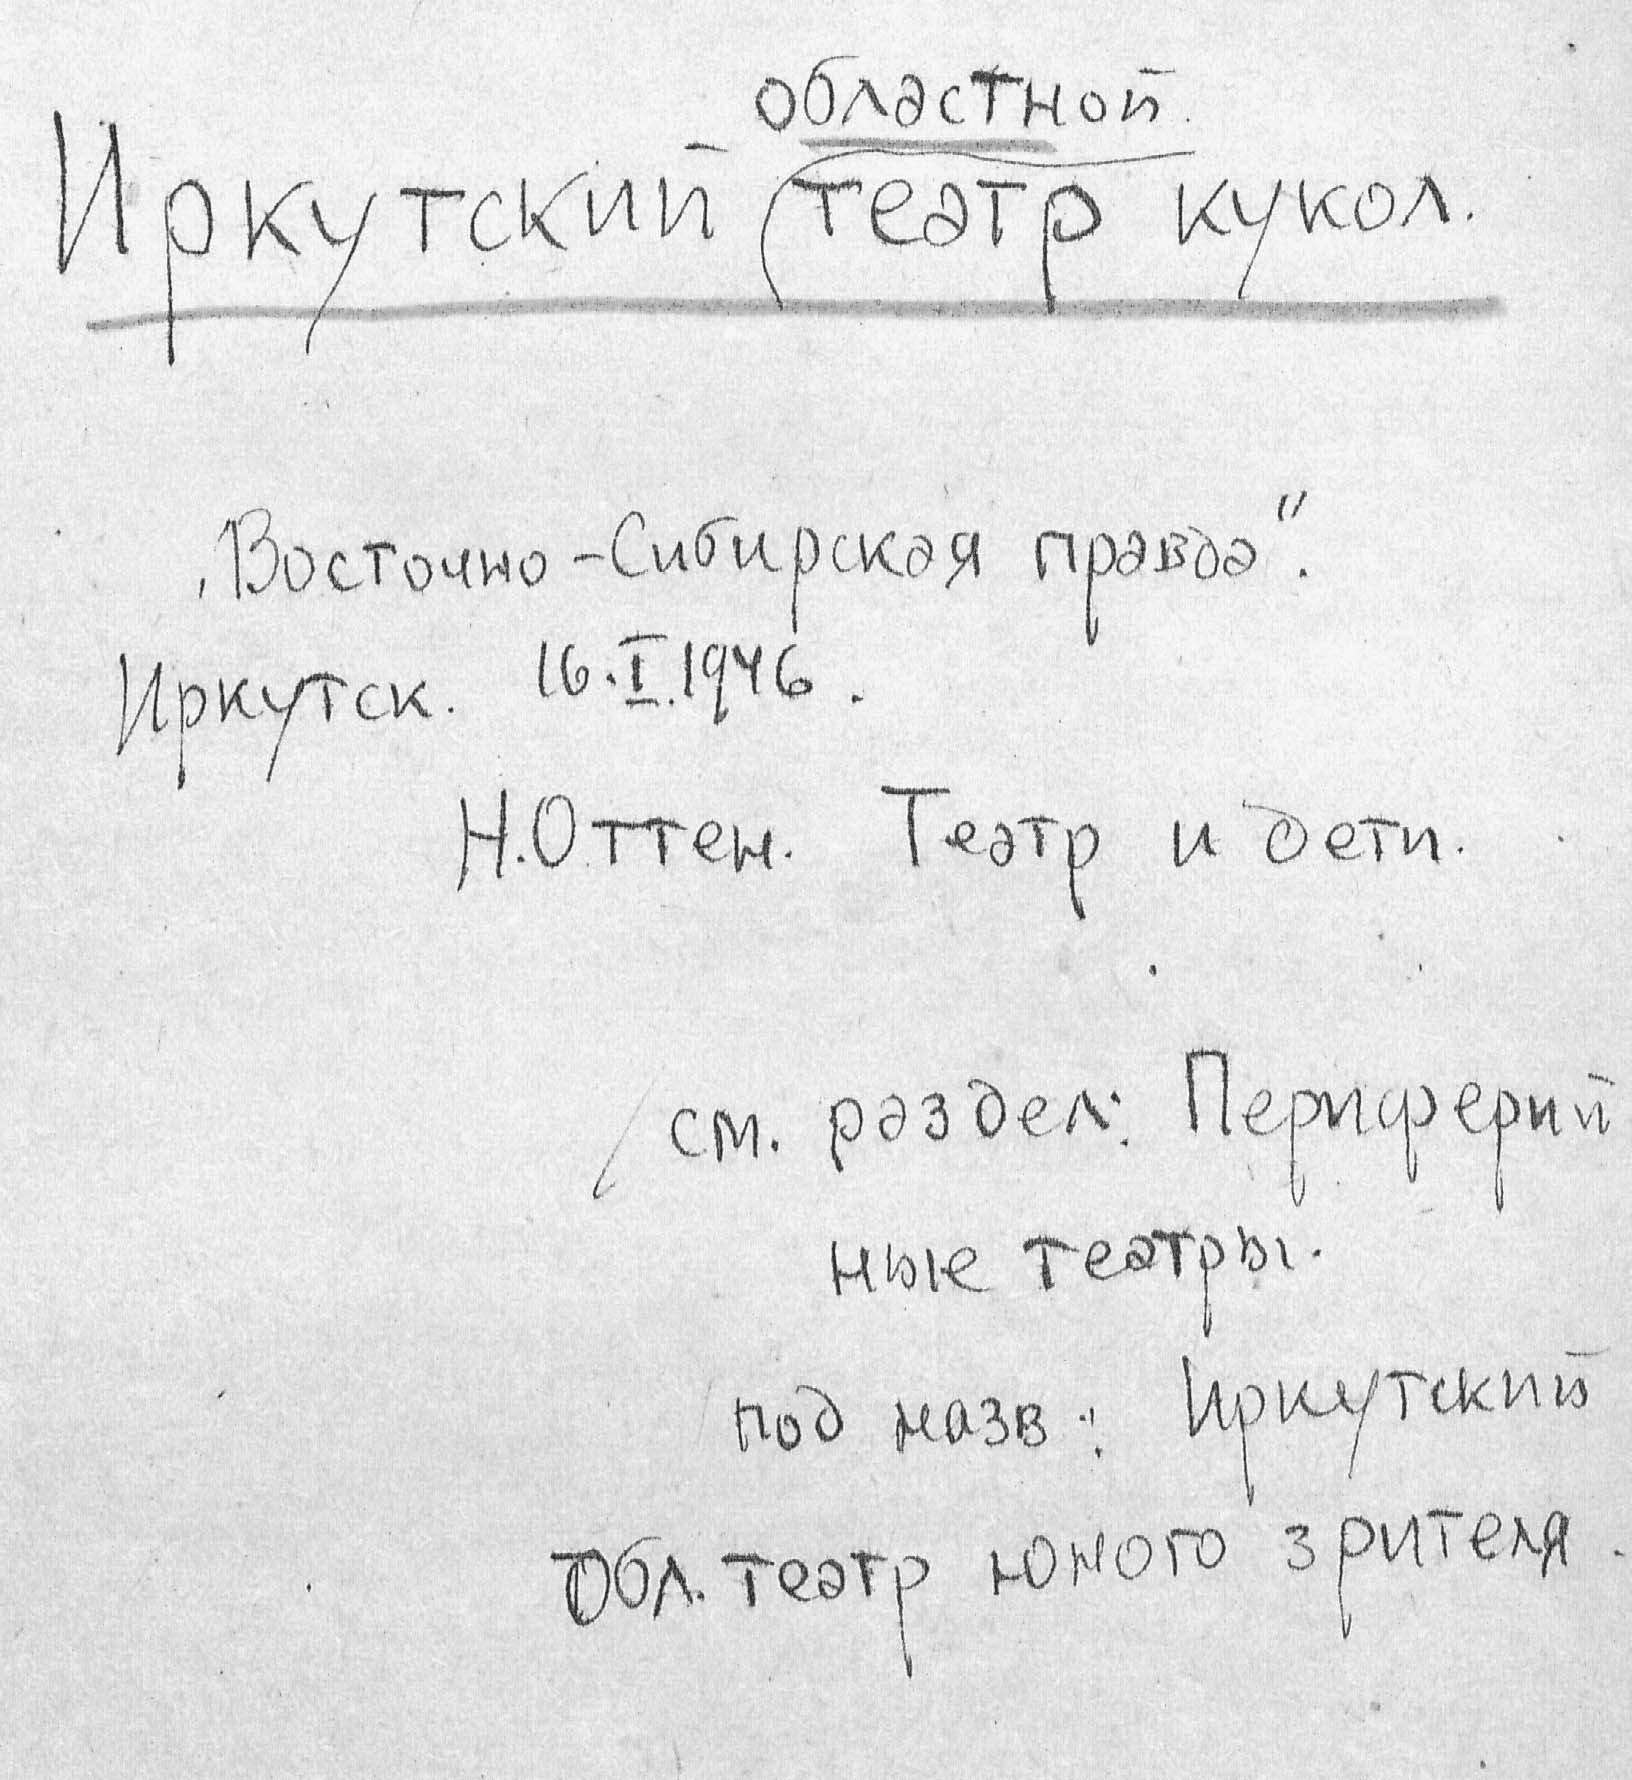 областной
Иркутский театр кукол.
„Восточно-Сибирская правда".
Иркутск. 16.I.1946.
Н.Оттен. Театр и дети.
см. раздел: Периферий
ные театры.
под назв.: Иркутский
Обл. театр юного зрителя.